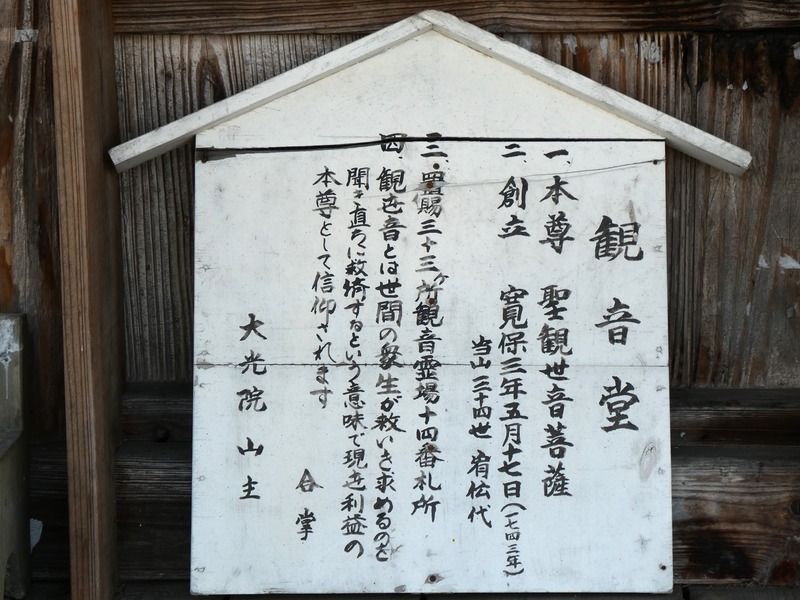 観音堂
一、本尊 聖観世音菩薩
二、創立 寛保三年五月十七日(一七四三年)
当山三十四世 宥伝代
三、置賜三十三ヶ所観音霊場十四番札所
四、観世音とは世間の衆生が救いを求めるのを
聞き直ちに救済するという意味で現世利益の
本尊として信仰されます
合掌
大光院山主